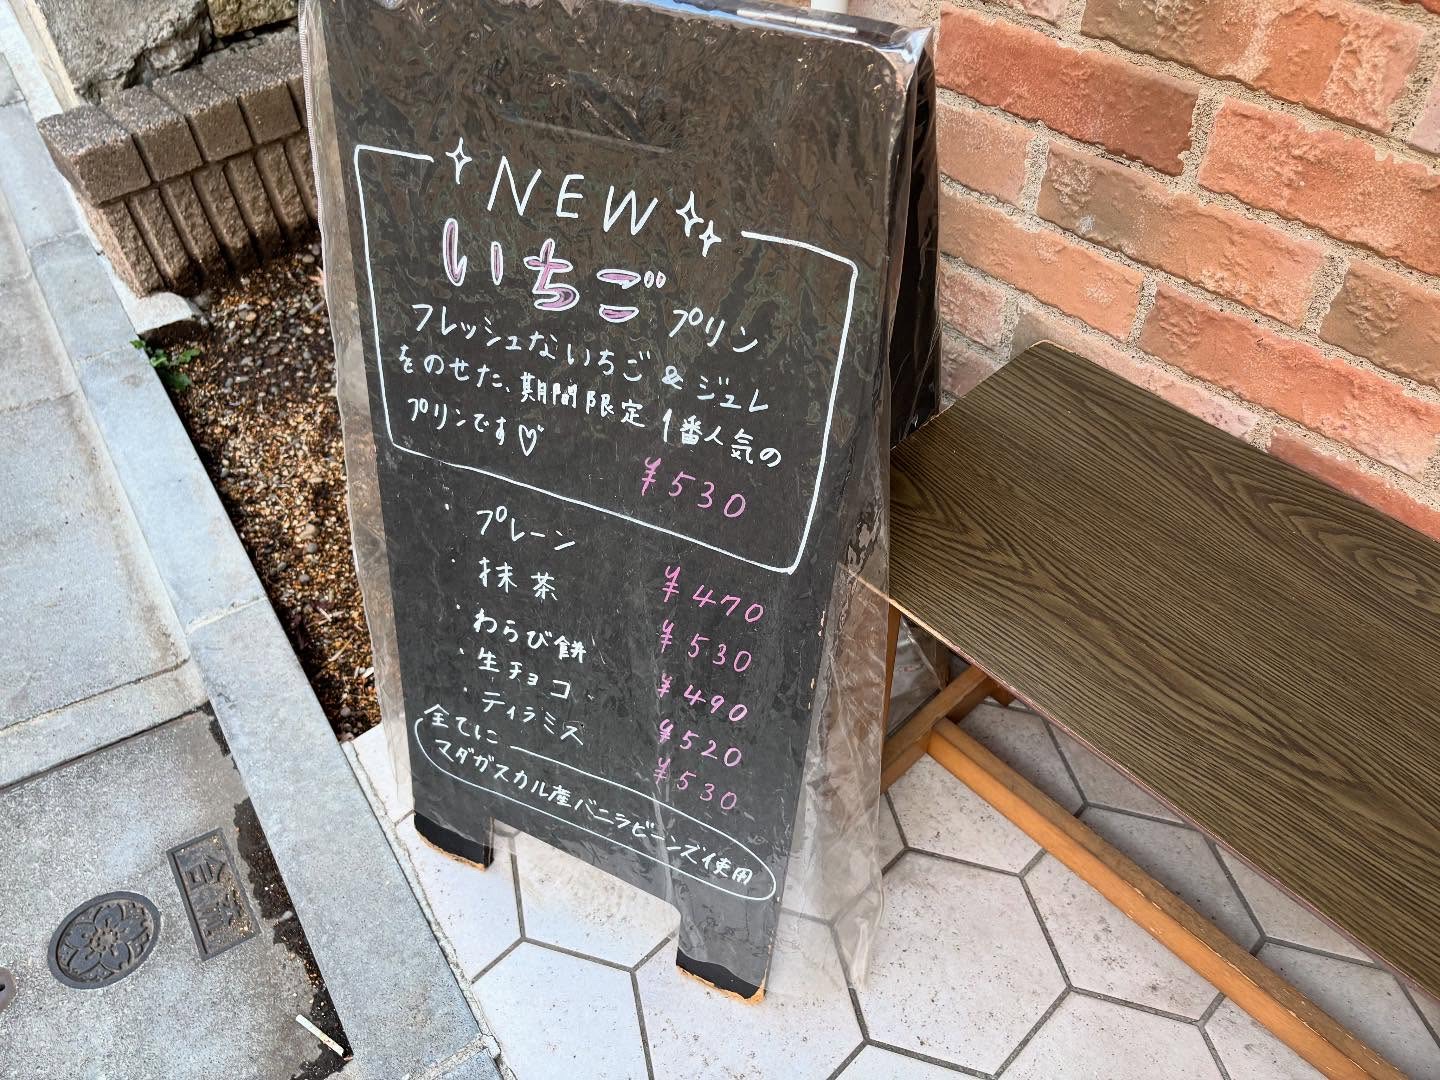 NEW
いちごプリン
フレッシュないちご & ジュレ
をのせた、期間限定 1番人気の
プリンです♡
¥530
・プレーン ¥470
・抹茶 ¥530
・わらび餅 ¥490
・生チョコ ¥520
・ティラミス ¥530
全てに
マダガスカル産バニラビーンズ使用